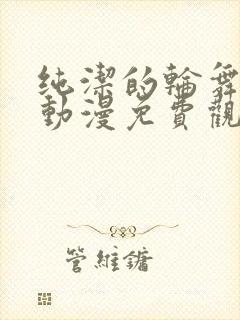 純潔的輪舞
動漫免費觀
管維鏞